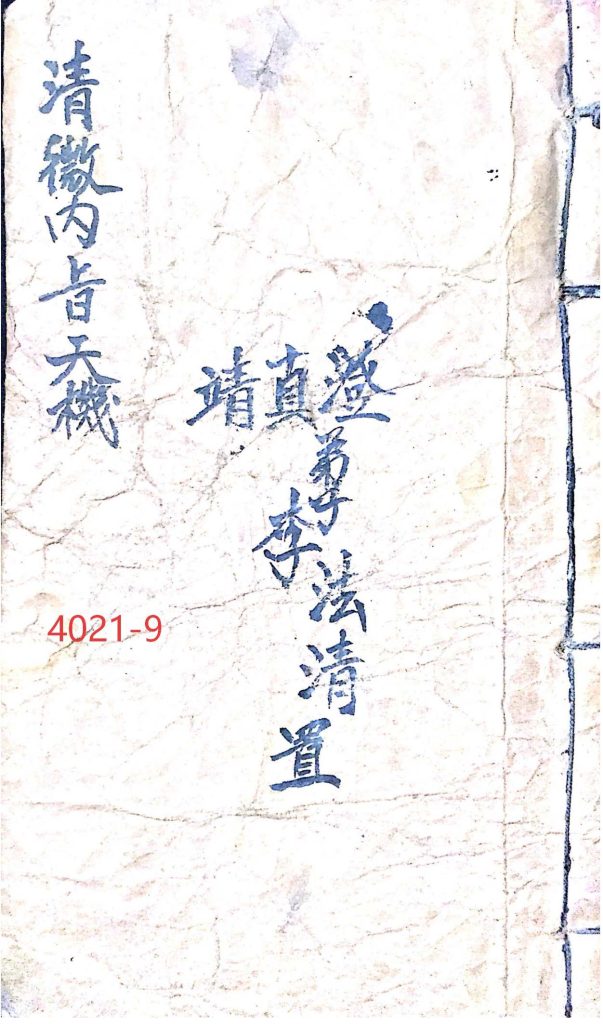 澄真靖
弟子李法清置
清微内旨天機
4021-9